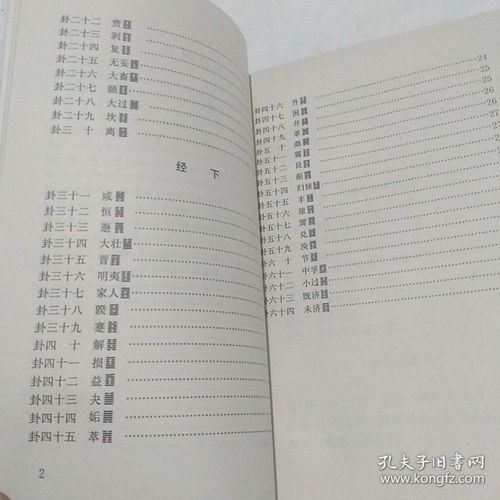 卦二十二 贲
卦二十三 剥
卦二十四 复
卦二十五 无妄
卦二十六 大畜
卦二十七 颐
卦二十八 大过
卦二十九 坎
卦三十 离
经下
卦三十一 咸
卦三十二 恒
卦三十三 遯
卦三十四 大壮
卦三十五 晋
卦三十六 明夷
卦三十七 家人
卦三十八 睽
卦三十九 蹇
卦四十 解
卦四十一 损
卦四十二 益
卦四十三 夬
卦四十四 姤
卦四十五 萃
2
24
卦四十六 升
卦四十七 困
卦四十八 井
卦四十九 革
卦五十 鼎
卦五十一 震
卦五十二 艮
卦五十三 渐
卦五十四 归妹
卦五十五 丰
卦五十六 旅
卦五十七 巽
卦五十八 兑
卦五十九 涣
卦六十 节
卦六十一 中孚
卦六十二 小过
卦六十三 既济
卦六十四 未济
孔夫子旧书网
kongfz.com